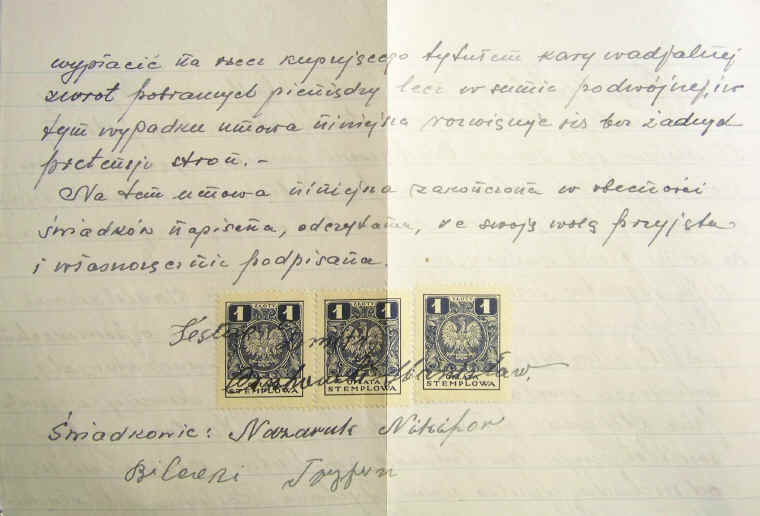 wypłacić na rzecz kupującego tytułem kary wadjalnej
zwrot pobranych pieniędzy lecz w sumie podwójnej, i w
tym wypadku umowa niniejsza rozwiązuje się bez żadnych
pretensji stron. –
Na tem umowa niniejsza zakończona w obecności
świadków napisana, odczytana, za swoją wolą przyjęta
i własnoręcznie podpisana.
1 ZŁOTY 1 1 ZŁOTY 1 1 ZŁOTY 1
OPŁATA STEMPLOWA OPŁATA STEMPLOWA OPŁATA STEMPLOWA
Świadkowie: Nazaruk Nikifor